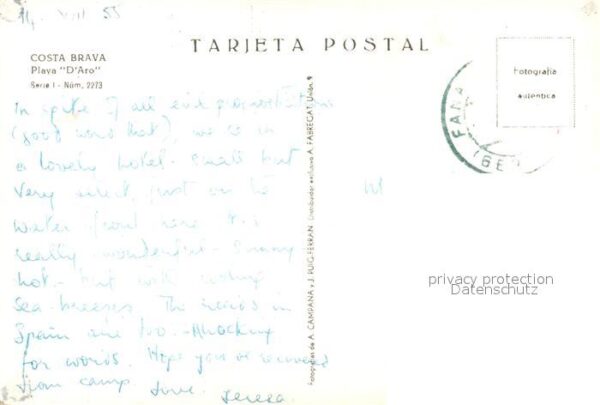 14. VIII 55
TARJETA POSTAL
COSTA BRAVA
Playa "D'Aro"
Serie I - Núm. 2273
Fotografía
autentica
In spite of all evil
(good word that), we are in
a lovely hotel - small but
very select, just on the
water front here. It is
really wonderful. Sunny
hot - but with cooling
sea-breezes. The roads in
Spain are too - shocking
for words. Hope you've recovered
from camp.
Love. Teresa.
Fotografías de A. CAMPAÑA y J. PUIG-FERRAN (Distribuidor exclusivo A. FABREGAT, Unión, 9
privacy protection
Datenschutz